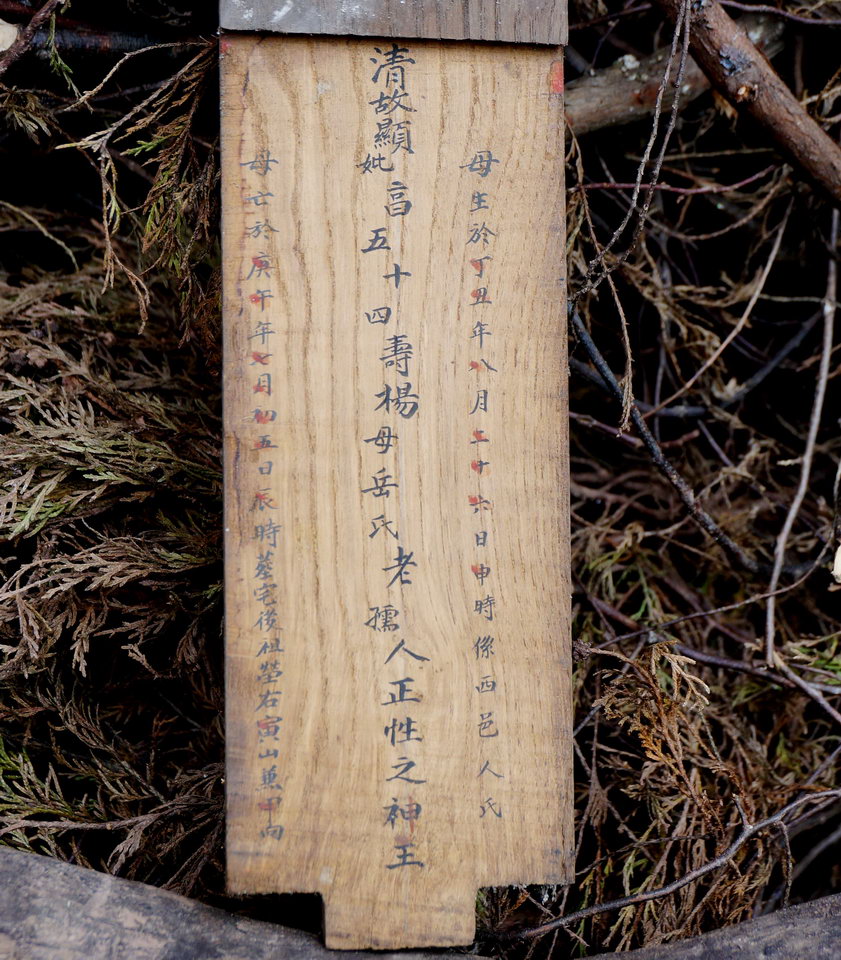 母生於丁丑年八月二十六日申時係西邑人氏
清故顯妣亯五十四壽楊母岳氏老孺人正性之神王
母亡於庚午年七月初五日辰時塟宅後祖塋右寅山兼甲向